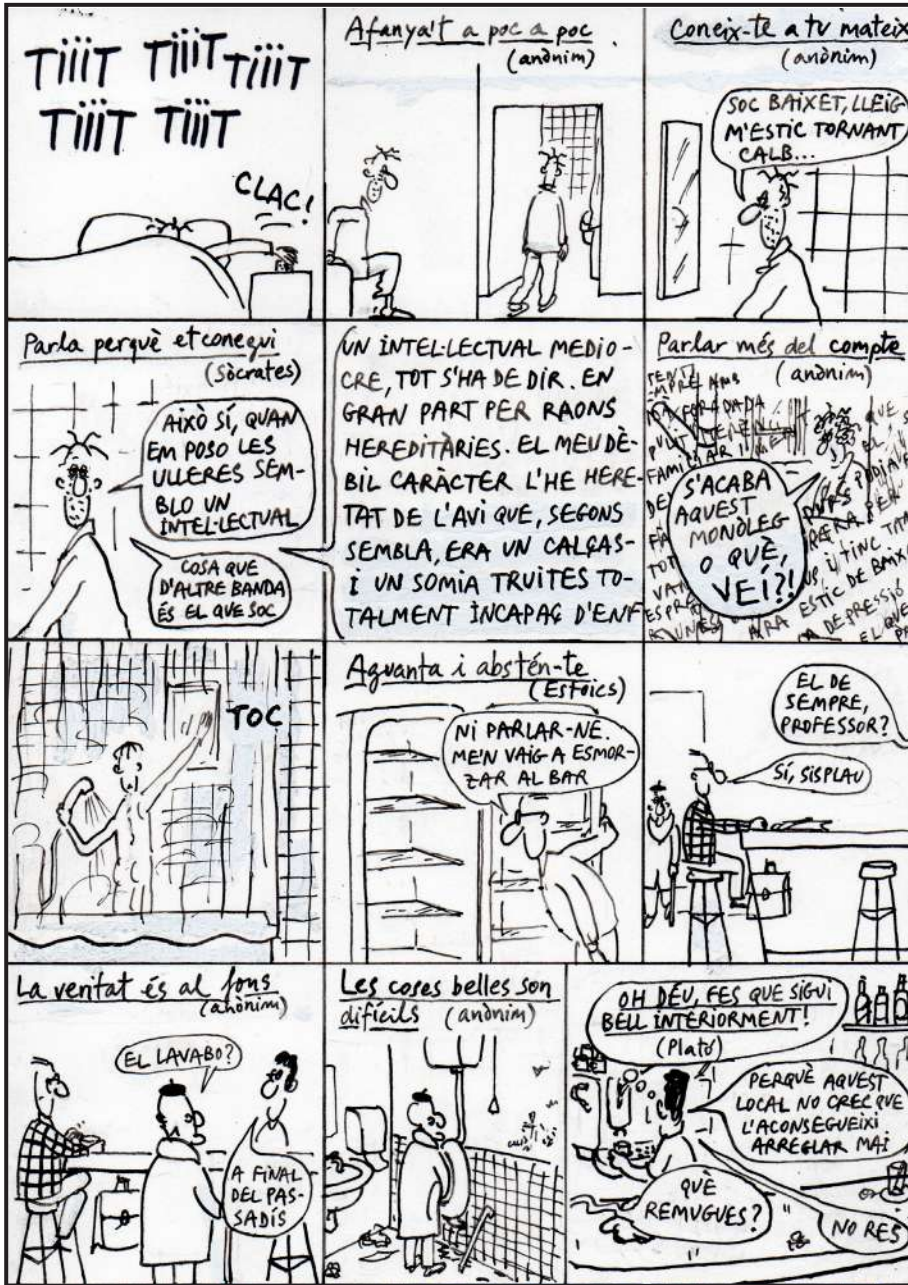 TIIIT TIIIT TIIIT
TIIIT TIIIT
CLAC!
Afanya't a poc a poc
(anònim)
Coneix-te a tu mateix
(anònim)
SOC BAIXET, LLEIG
M'ESTIC TORNANT
CALB...
Parla perquè et conegui
(Sòcrates)
AIXÒ SÍ, QUAN
EM POSO LES
ULLERES SEM-
BLO UN
INTEL·LECTUAL
COSA QUE
D'ALTRE BANDA
ÉS EL QUE SOC
UN INTEL·LECTUAL MEDIO-
CRE, TOT S'HA DE DIR. EN
GRAN PART PER RAONS
HEREDITÀRIES. EL MEU DÈ-
BIL CARÀCTER L'HE HERE-
TAT DE L'AVI QUE, SEGONS
SEMBLA, ERA UN CALÇAS-
I UN SOMIA TRUITES TO-
TALMENT INCAPAÇ D'ENF
Parlar més del compte
(anònim)
S'ACABA
AQUEST
MONÒLEG
O QUÈ,
VEÍ?!
ARA ESTIC DE BAIXA
DEPRESSIÓ
EL QUE
TOC
Aguanta i abstén-te
(Estoics)
NI PARLAR-NE.
ME'N VAIG A ESMOR-
ZAR AL BAR
EL DE
SEMPRE,
PROFESSOR?
SÍ, SISPLAU
La veritat és al fons
(anònim)
EL LAVABO?
A FINAL
DEL PAS-
SADÍS
Les coses belles son
difícils (anònim)
OH DÉU, FES QUE SIGUI
BELL INTERIORMENT!
(Plató)
PERQUÈ AQUEST
LOCAL NO CREC QUE
L'ACONSEGUEIXI
ARREGLAR MAI
QUÈ
REMUGUES?
NO RES